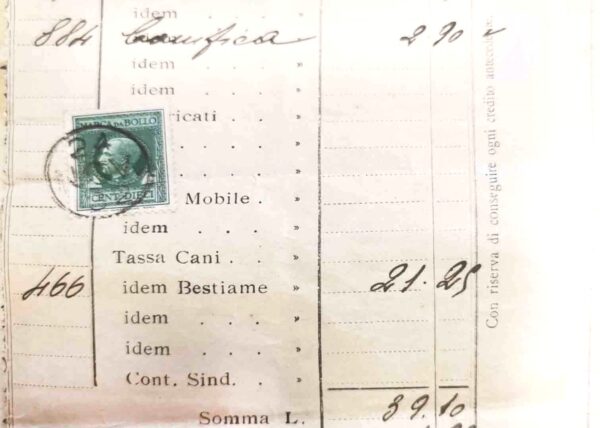 idem . . . »
884 Bonifica » 2 90
idem . . . »
idem . . . »
ricati . . »
MARCA DA BOLLO
CENT. DIECI
Mobile . »
idem . . . »
Tassa Cani . . »
466 idem Bestiame » 21.25
idem . . . »
idem . . . »
Cont. Sind. . »
Somma L. 39.10
Con riserva di conseguire ogni credito